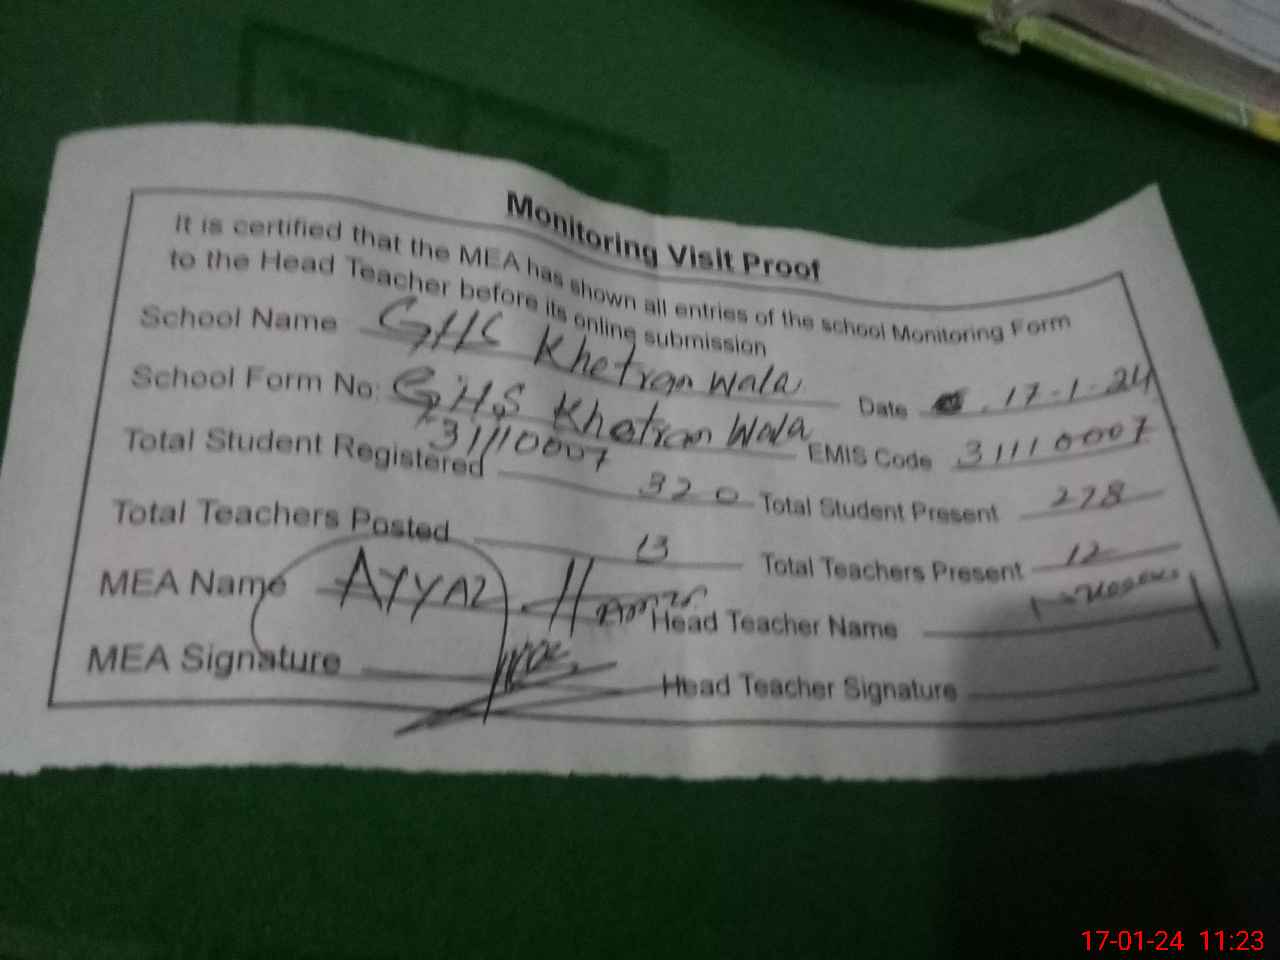 Monitoring Visit Proof
It is certified that the MEA has shown all entries of the school Monitoring Form
to the Head Teacher before its online submission
School Name GHS Khetran Wala Date 17-1-24
School Form No: GHS Khetran Wala EMIS Code 31110007
31110007
Total Student Registered 320 Total Student Present 278
Total Teachers Posted 13 Total Teachers Present 12
MEA Name AYYAZ Head Teacher Name
MEA Signature Head Teacher Signature
17-01-24 11:23